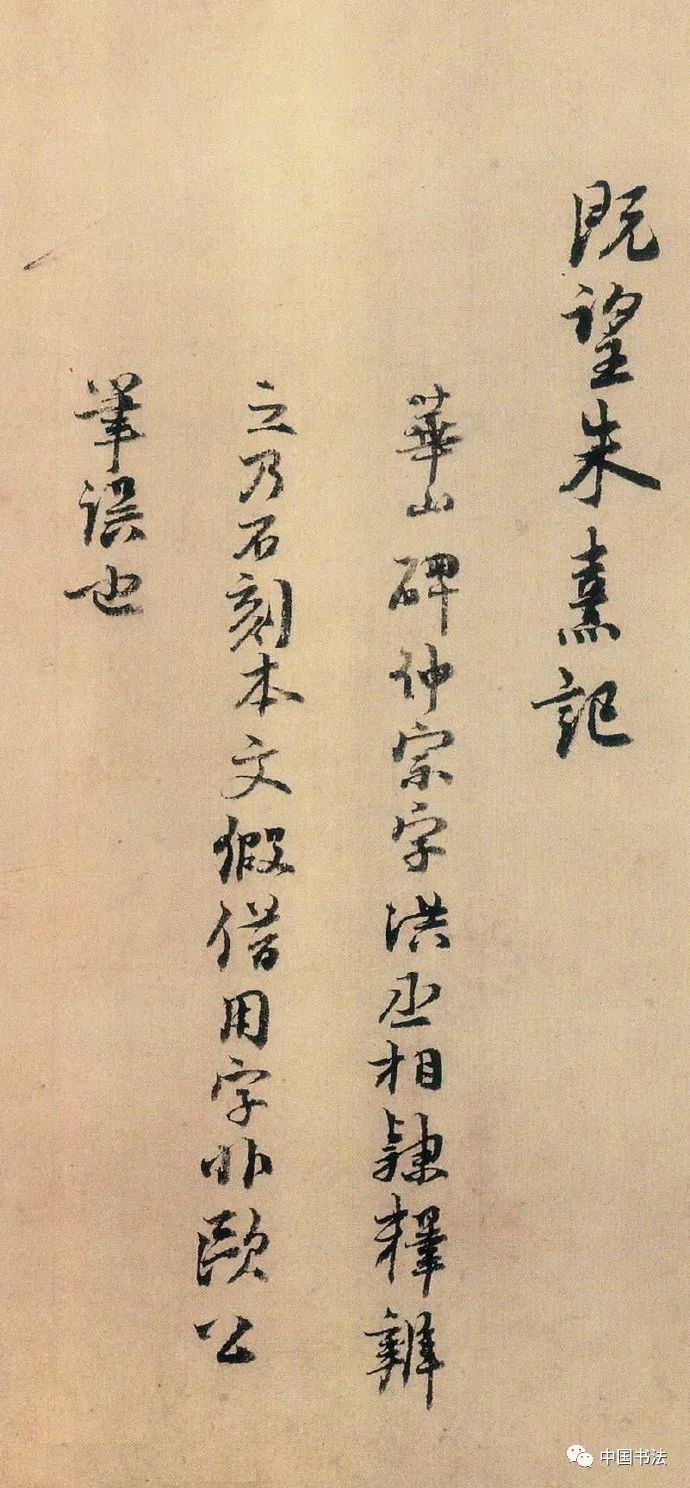 既望朱熹記
華山碑仲宗字洪丞相隷釋辨
之乃石刻本文假借用字非歐公
筆誤也
中国书法